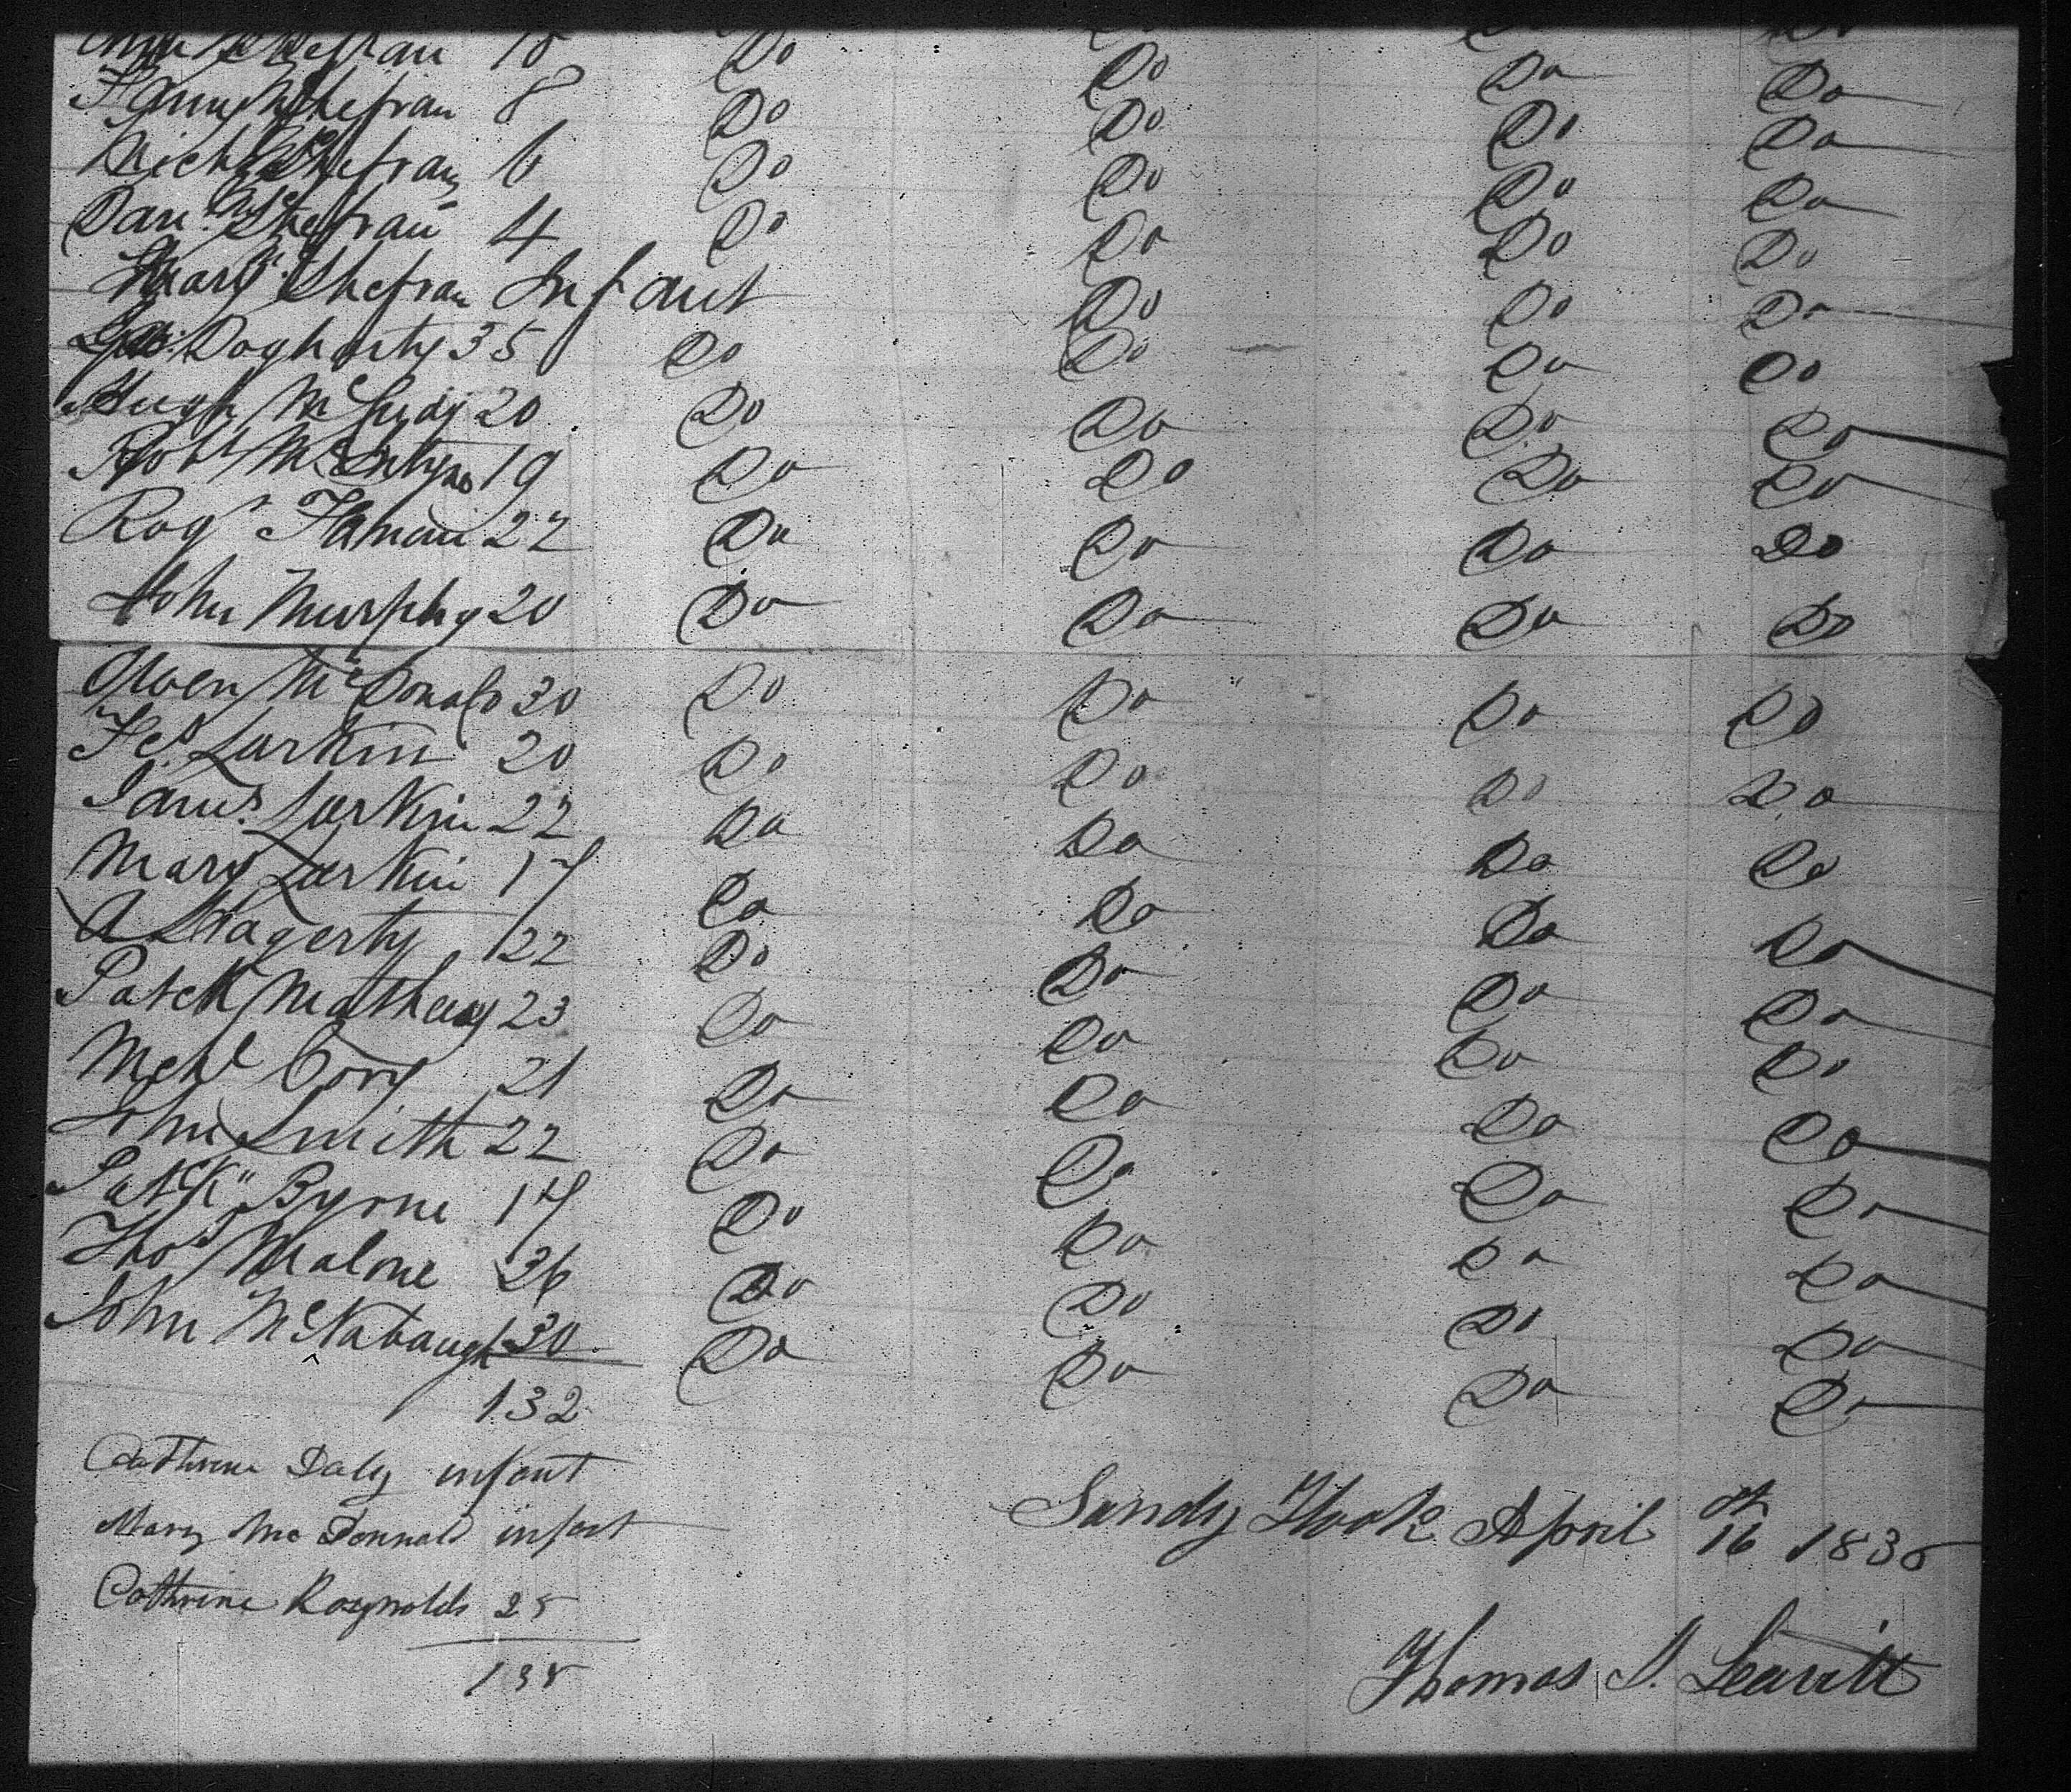 Shefran 10 Do Do Do Do
Fanny McShefran 8 Do Do Do Do
Michl McShefran 6 Do Do Do Do
Danl. McShefran 4 Do Do Do Do
Mary Shefran Infant Do Do Do
Dogherty 35 Do Do Do Do
Hugh 20 Do Do Do Do
Robt 19 Do Do Do Do
Rogr 22 Do Do Do Do
John Murphy 20 Do Do Do Do
Owen McDonald 30 Do Do Do Do
Larkin 20 Do Do Do Do
Larkin 22 Do Do Do Do
Mary Larkin 17 Do Do Do Do
A Hagerty 22 Do Do Do Do
Patck 23 Do Do Do Do
Mchl 21 Do Do Do Do
John Smith 22 Do Do Do Do
Patck Byrne 17 Do Do Do Do
Thos Malone 26 Do Do Do Do
John McNabaugh 30 Do Do Do Do
132
Cathrine Daly infant
Mary Mc Donnald infant
Cathrine Raynolds 25
135
Sandy Hook April 16th 1835
Thomas J. Leavitt